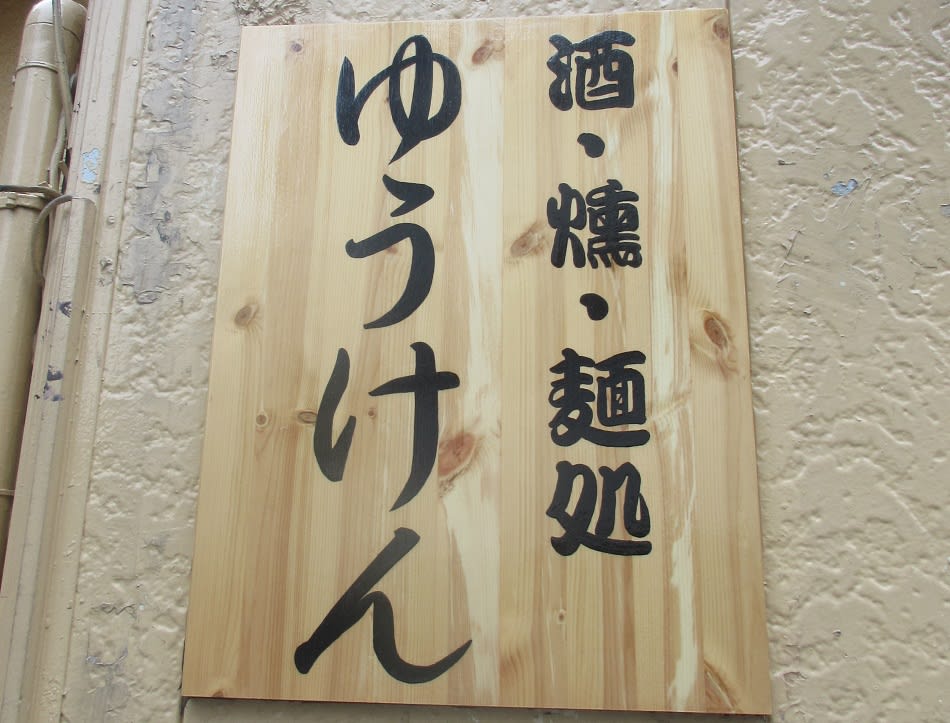 酒・燻・麺処
ゆうけん